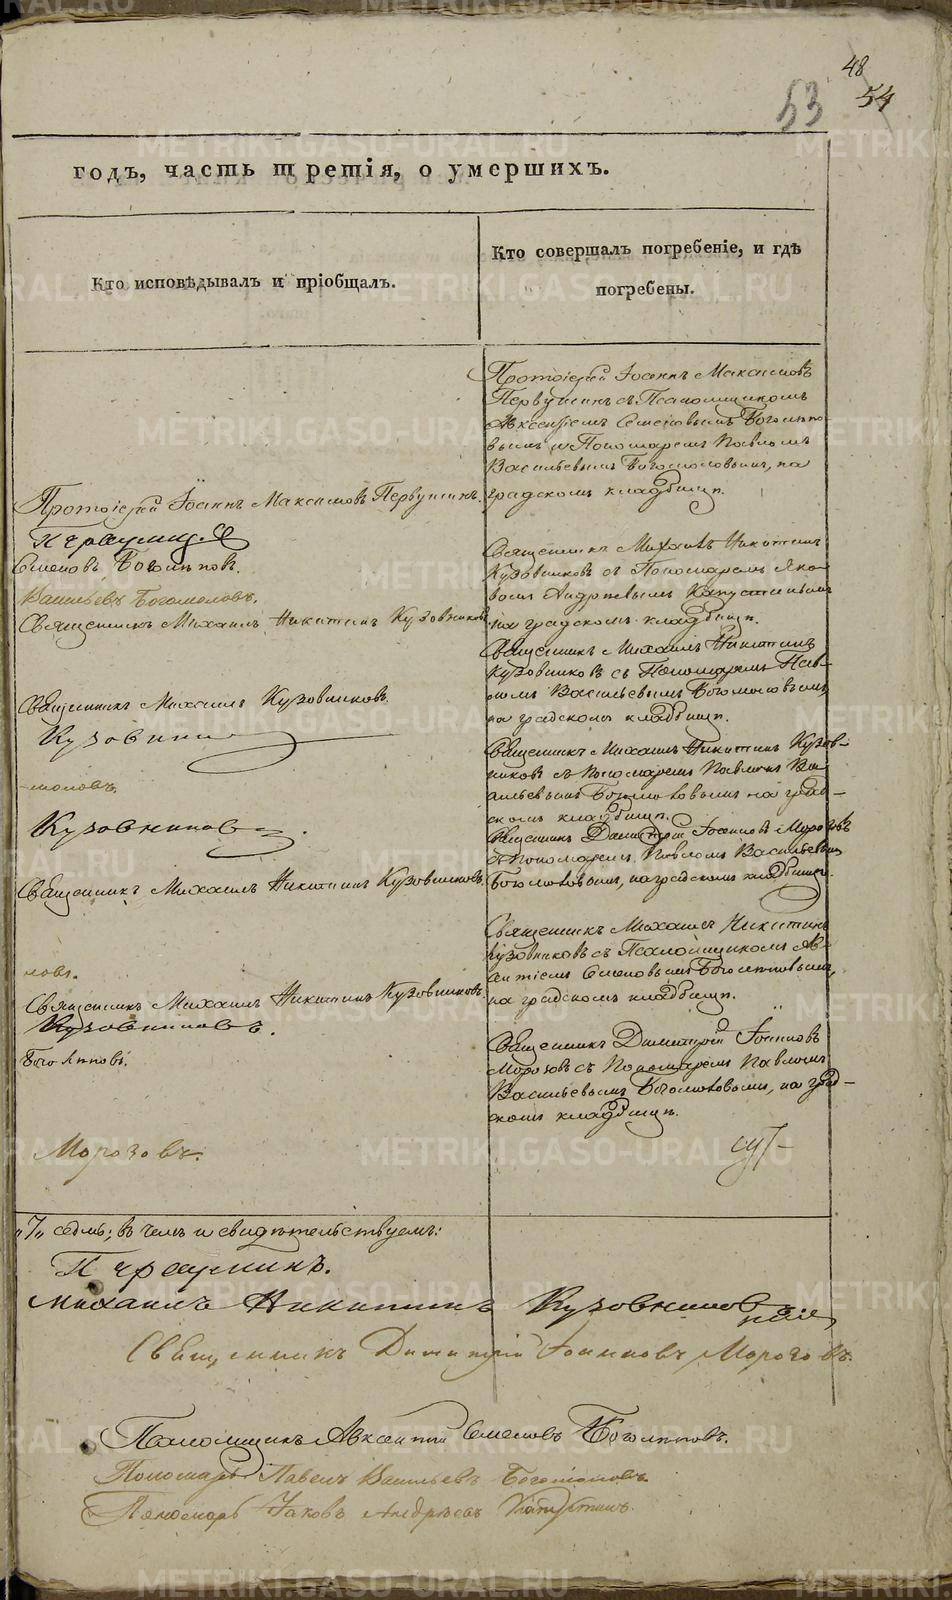 48
53 54
годъ, часть третія, о умершихъ.
Кто исповѣдывалъ и пріобщалъ.
Кто совершалъ погребеніе, и гдѣ
погребены.
Протоіерей Іоаннъ Максимовъ
Первушинъ съ Псаломщикомъ
Авксентіемъ Семеновымъ Боголѣпо
вымъ и Пономаремъ Павломъ
Васильевымъ Богомоловымъ, на
градскомъ кладбищѣ.
Протоіерей Іоаннъ Максимовъ Первушинъ.
Первушинъ
Семеновъ Боголѣповъ.
Васильевъ Богомоловъ.
Священникъ Михаилъ Никитинъ Кузовниковъ
Священникъ Михаилъ Никитинъ
Кузовниковъ съ Пономаремъ Яко-
вомъ Андреевымъ Капустинымъ
на градскомъ кладбищѣ.
Священникъ Михаилъ Кузовниковъ.
Кузовник
Священникъ Михаилъ Никитинъ
Кузовниковъ съ Пономаремъ Пав-
ломъ Васильевымъ Богомоловымъ,
на градскомъ кладбищѣ.
-моловъ.
Кузовниковъ.
Священникъ Михаилъ Никитинъ Кузов-
никовъ съ Пономаремъ Павломъ Ва-
сильевымъ Богомоловымъ на град-
скомъ кладбищѣ.
Священникъ Михаилъ Никитинъ Кузовниковъ.
Священникъ Димитрій Іоанновъ Морозовъ
съ Пономаремъ Павломъ Васильевымъ
Богомоловымъ, на градскомъ кладбищѣ.
ловъ.
Священникъ Михаилъ Никитинъ Кузовниковъ.
Кузовниковъ.
Боголѣповъ.
Священникъ Михаилъ Никитинъ
Кузовниковъ съ Псаломщикомъ Ав
ентіемъ Семеновымъ Боголѣповымъ,
на градскомъ кладбищѣ.
Морозовъ.
Священникъ Димитрій Іоанновъ
Морозовъ съ Пономаремъ Павломъ
Васильевымъ Богомоловымъ, на град-
скомъ кладбищѣ.
„7„ седмь; въ чемъ и свидѣтельствуемъ:
Первушинъ.
Михаилъ Никитинъ Кузовников
Священникъ Димитрій Іоанновъ Морозовъ.
Псаломщикъ Авксентій Семеновъ Боголѣповъ.
Пономарь Павелъ Васильевъ Богомоловъ
Пономарь Іаковъ Андрѣевъ Капустинъ.
METRIKI.GASO-URAL.RU